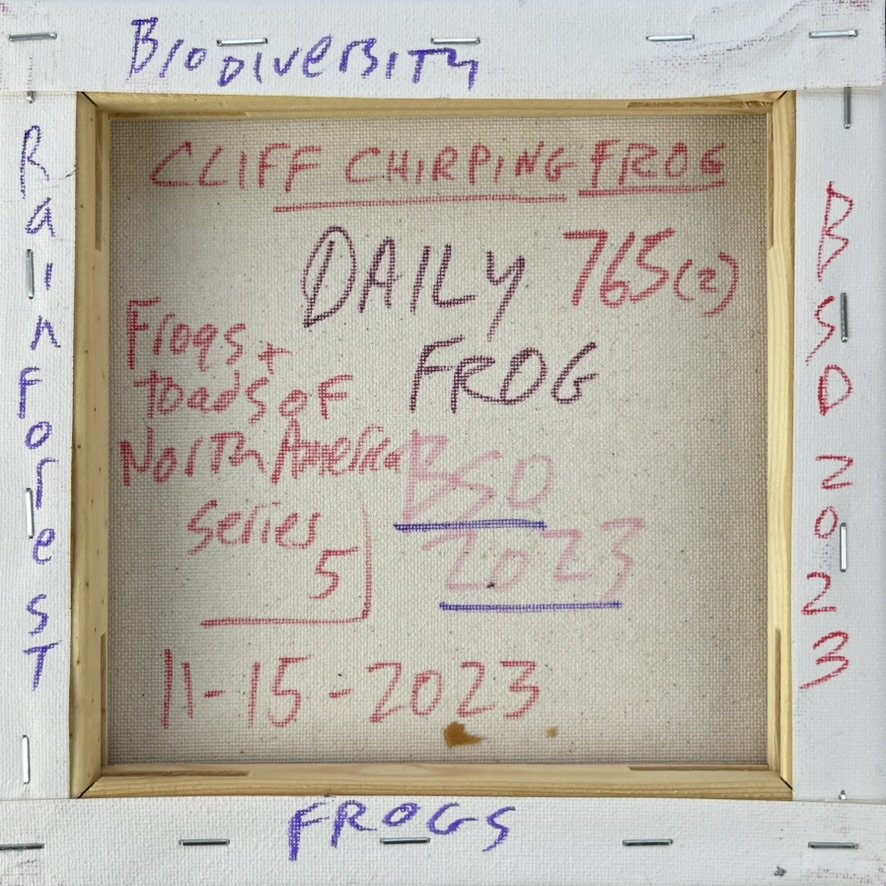 BIODIVERSITY
RainForesT
CLIFF CHIRPING FROG
DAILY 765(2)
FROG
Frogs +
toads OF
North America
series
5
BSD
2023
11-15-2023
BSD 2023
FROGS